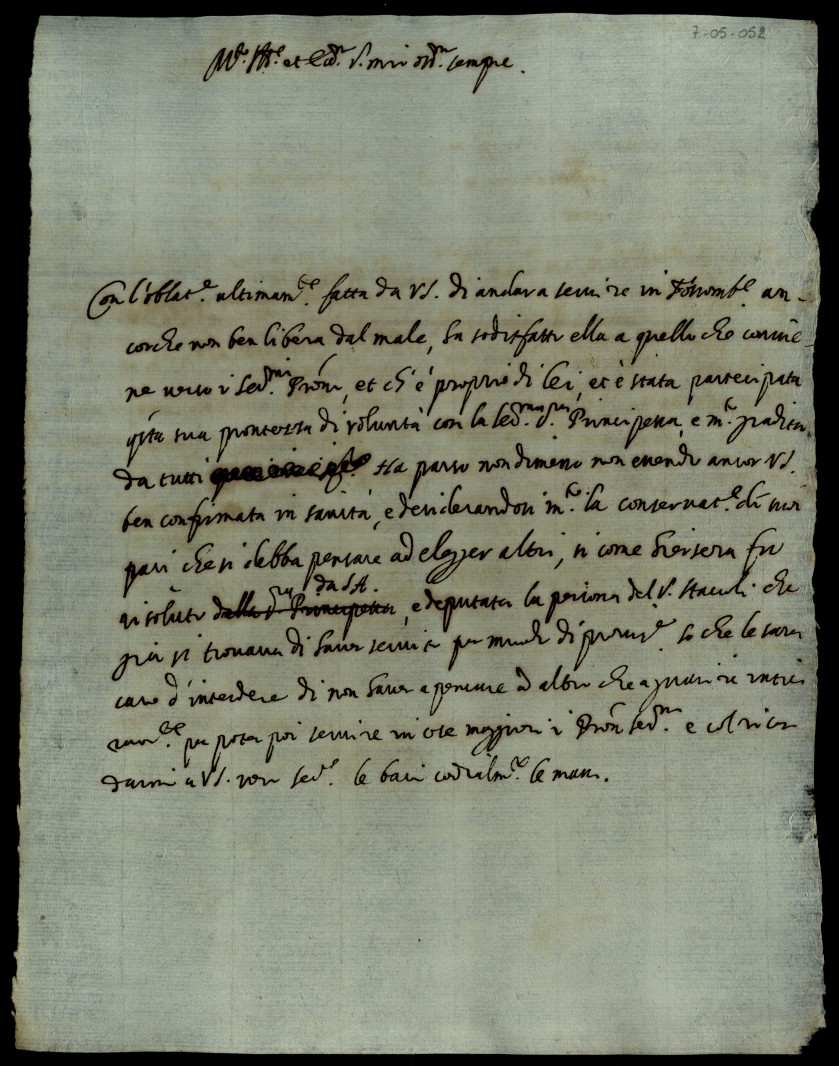 7-05-052
M.to Ill.re et Ecc.te S.r mio oss.mo sempre.
Con l'oblat.e ultimam.te fatta da VS. di andar a servire in an-
corche non ben libera dal male, ha sodisfatto ella a quello che convie-
ne verso i Ser.mi Pròni, et ch'è proprio di lei, et è stata partecipata
q̃sta sua prontezza di volontà con la Ser.ma S.ra Principessa, e m.to gradita
da tutti Ha parso nondimeno non essendo ancor VS.
ben confirmata in sanità, e desiderandosi m.to la conservat.e di suoi
pari che si debba pensare ad elegger altri, si come hiersera fu
risoluto dalla S.ra Principessa da S.A., e deputata la persona del S. che
già si trovava di haver servito per modo di so che le sarà
caro d'intendere di non haver a pensare ad altro che a guarire intie
ram.te per poter poi servire in cose maggiori i Pròni Ser.mi e col ricor
darmi a VS. ser.re le baci cordialm.te le mani.